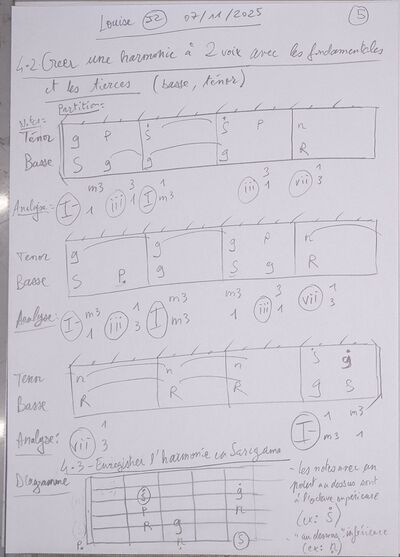 Louise J2 07/11/2025 5
4.2 Créer une harmonie à 2 voix avec les fondamentales
et les tierces (basse, ténor)
Partition:
Notes:
Ténor g P Ṡ Ṡ P n
Basse S g g g R
Analyse: I- m3 1 iii 3 1 I- 1 m3 iii 3 1 vii 1 3
Tenor g g g P n
Basse S Ṗ g S g R
Analyse: I- m3 1 iii 1 3 I- m3 m3 1 iii 3 1 vii 1 3
Tenor n n n Ṡ ġ
Basse R R R g S
Analyse: vii 1 3 I- 1 m3 m3 1
4.3 - Enregistrer l'harmonie en Saregama
Diagramme
S ġ
P n
R g
P. n S
- les notes avec un
point au dessus sont
à l'octave supérieure
(ex: Ṡ)
- "au dessous" inférieure